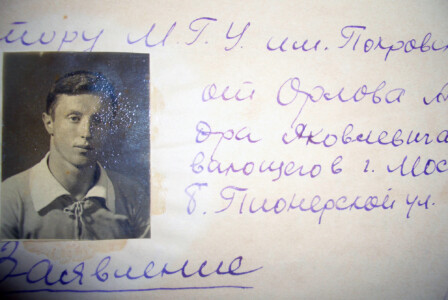 тору М.Г.У. им. Покровс
от Орлова А
дра Яковлевича
вающего в г. Мос
Б. Пионерской ул.
Заявление